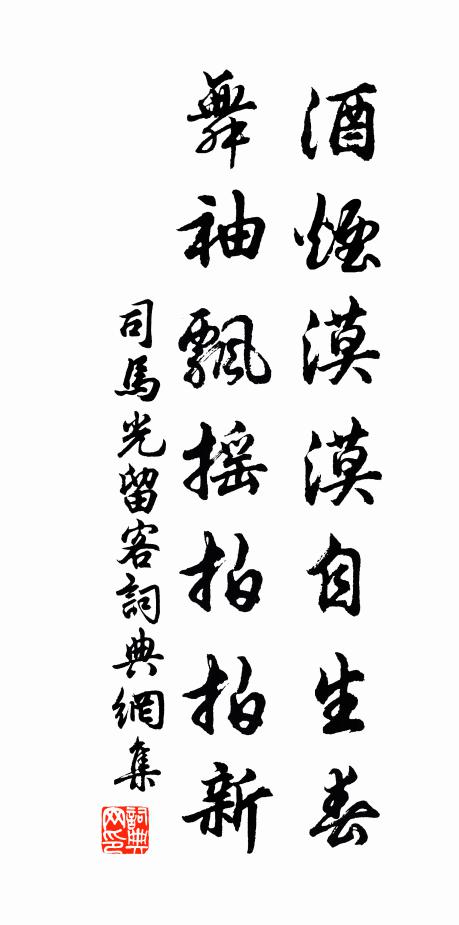 酒煙漠漠自生春
舞袖飄摇拍拍新
司馬光留客詞典網集
詞典网印